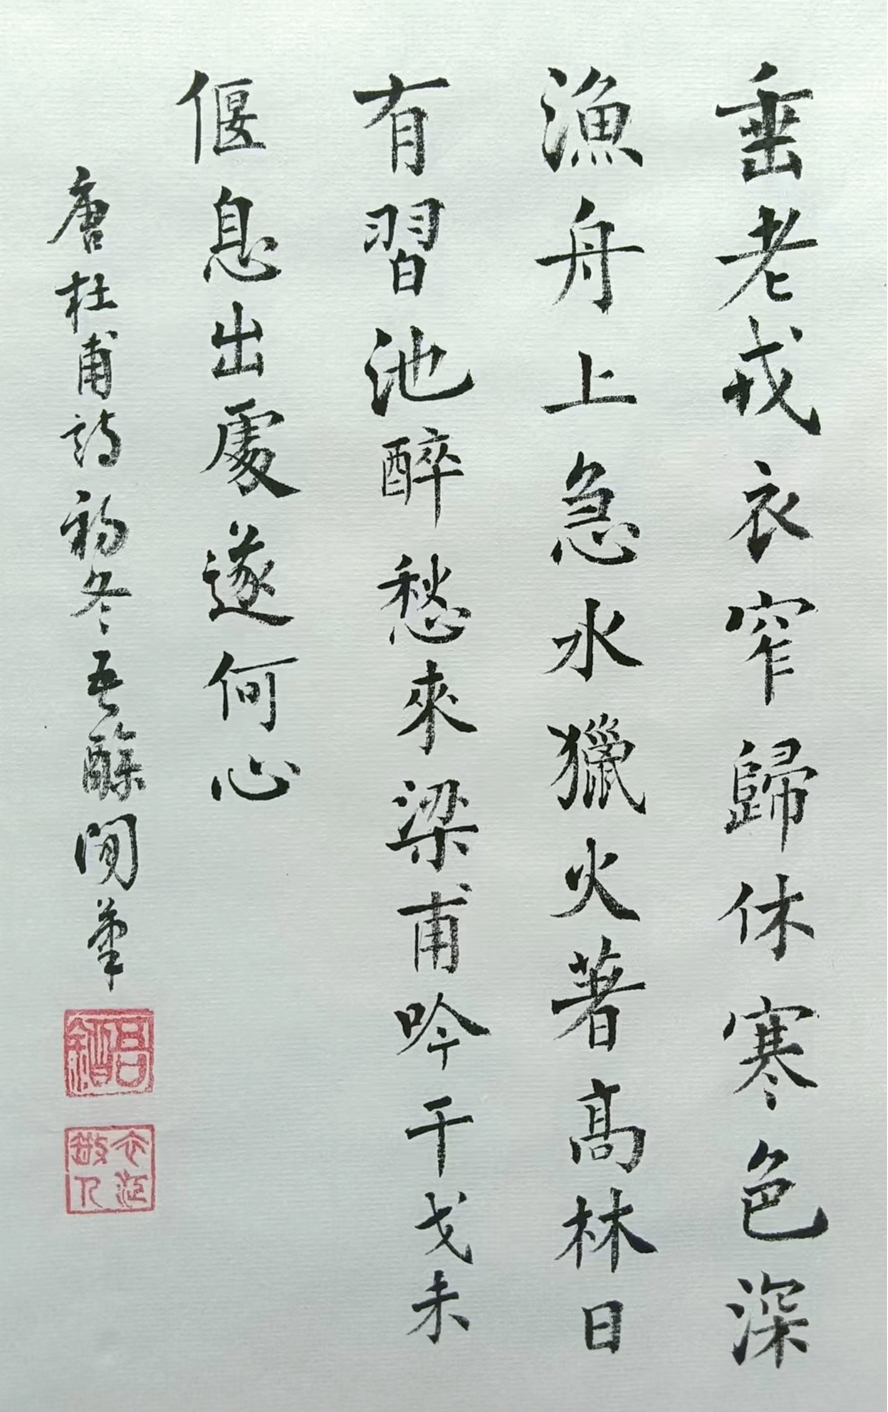 垂老戎衣窄歸休寒色深
漁舟上急水獵火著高林日
有習池醉愁來梁甫吟干戈未
偃息出處遂何心
唐杜甫詩初冬吾醵閒筆